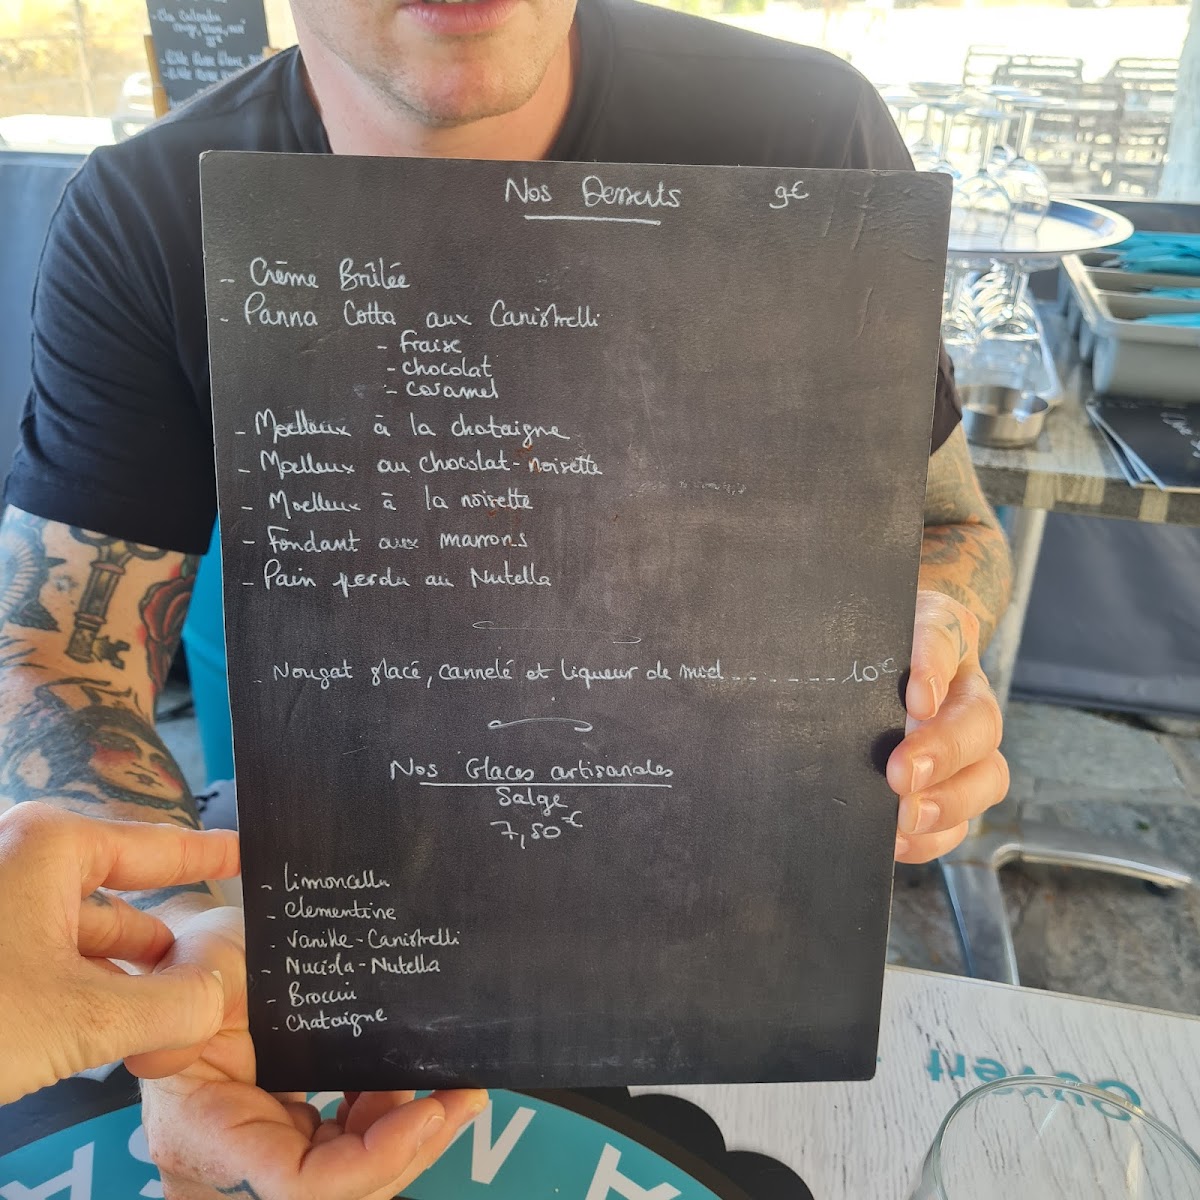 Nos Desserts 9€
- Crème Brûlée
- Panna Cotta aux Canistrelli
- fraise
- chocolat
- caramel
- Moelleux à la chataigne
- Moelleux au chocolat-noisette
- Moelleux à la noisette
- Fondant aux marrons
- Pain perdu au Nutella
- Nougat glacé, cannelé et liqueur de miel ------ 10€
Nos Glaces artisanales
Salge
7,50€
- Limoncellu
- Clementine
- Vanille-Canistrelli
- Nuciola-Nutella
- Brocciu
- Chataigne
Ouvert